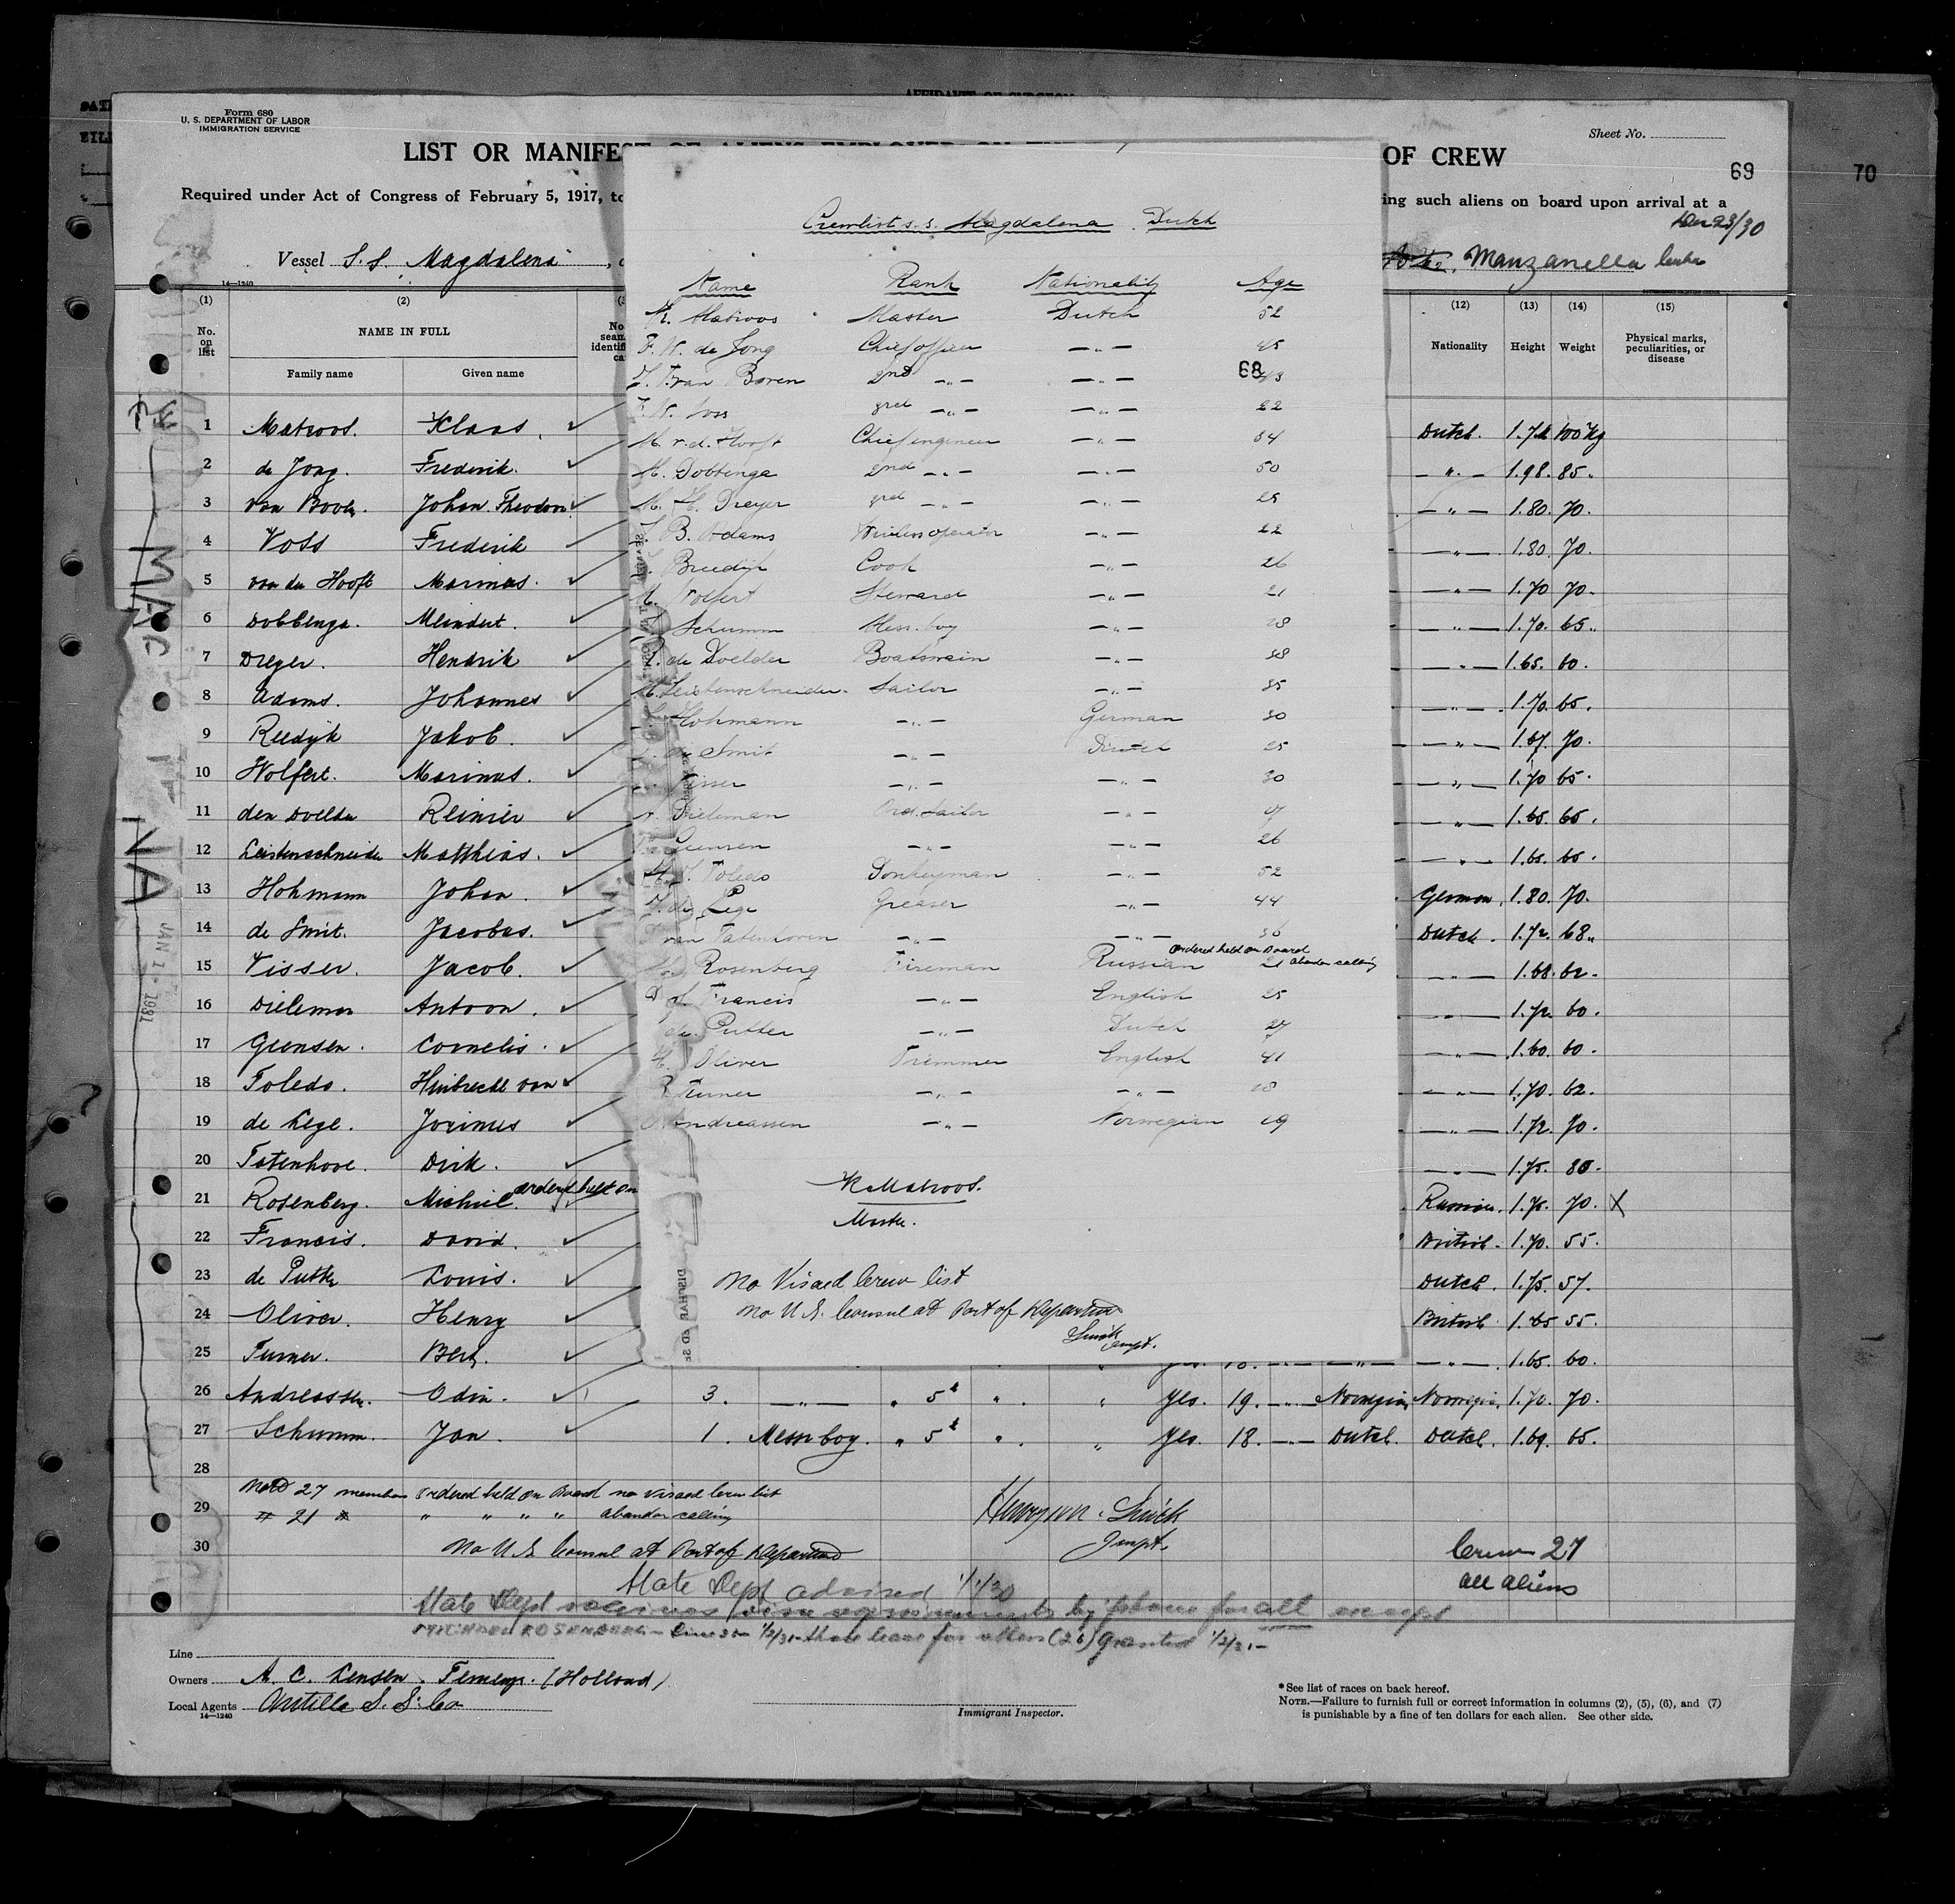 Form 680
U. S. DEPARTMENT OF LABOR
IMMIGRATION SERVICE
Sheet No.
LIST OR MANIFEST OF ALIENS EMPLOYED ON THE
OF CREW
69
70
Required under Act of Congress of February 5, 1917, to
ing such aliens on board upon arrival at a
Dec 23/30
Vessel S.S. Magdalena
Manzanella Cuba
14—1240
(1) (2)
(12) (13) (14) (15)
No. on list
NAME IN FULL
Family name Given name
Nationality Height Weight Physical marks, peculiarities, or disease
1 Matroos. Klaas. Dutch. 100 Kg
2 de Jong. Frederik. — " — 1.98. 85.
3 van Boven. Johan Theodoor — " — 1.80. 70.
4 Voss Frederik — " — 1.80. 70.
5 van der Hooft Marinus. — " — 1.70 70.
6 Dobbenga. Meindert. — " — 1.70. 65.
7 Dreyer. Hendrik — " — 1.65. 60.
8 Adams. Johannes — " — 1.70. 65.
9 Reedijk Jakob. — " — 1.67. 70.
10 Wolfert. Marinus. — " — 1.70 65.
11 den Doelder Reinier — " — 1.65. 65.
12 Leistenschneider Matthias. — " — 1.65. 65.
13 Hohmann Johan. German. 1.80. 70.
14 de Smit. Jacobus. Dutch. 1.72. 68.
15 Visser. Jacob. — " — 1.68. 62.
16 Dieleman Antoon. — " — 1.72. 60.
17 Geensen. Cornelis. — " — 1.60. 60.
18 Toledo. Huibrecht van — " — 1.70. 62.
19 de Lege. Josinus — " — 1.72. 70.
20 Tatenhove. Dirk. — " — 1.75. 80.
21 Rosenberg. Michiel. ordered held on Russian. 1.75. 70. X
22 Francis. David. British. 1.70. 55.
23 de Putter Louis. Dutch. 1.75. 57.
24 Oliver. Henry British. 1.65 55.
25 Turner. Bert. — " — 1.65. 60.
26 Andreassen. Odin. 3. — " — " 5 " " Yes. 19. — " — Norwegian Norwegian. 1.70. 70.
27 Schumm. Jan. 1. Messboy. " 5 " " Yes. 18. — " — Dutch. Dutch. 1.69. 65.
28
29
30
27 members ordered held on Board no visaed Crew list
# 21 " " " " " abandon calling
no U.S. Consul at Port of Departure
Inspt.
Crew 27
all aliens
State Dept advised 1/1/30
State Dept waives visa requirements by phone for all except
MICHAEL ROSENBERG — 1/2/31 — shore leave for others (26) granted 1/2/31 —
Line
Owners A. C. Lensen. (Holland)
Local Agents Antilla S. S. Co
14—1240
Immigrant Inspector.
* See list of races on back hereof.
NOTE.—Failure to furnish full or correct information in columns (2), (5), (6), and (7)
is punishable by a fine of ten dollars for each alien. See other side.
Crewlist s.s. Magdalena. Dutch
Name Rank Nationality Age
K. Matroos Master Dutch 52
F. W. de Jong Chief officer — " — 45
J. T. van Boven 2nd — " — — " — 43
68
F. W. Voss 3rd — " — — " — 22
M. v.d. Hooft Chief engineer — " — 34
M. Dobbenga 2nd — " — — " — 50
M. H. Dreyer 3rd — " — — " — 25
J. B. Adams Wireless operator — " — 22
J. Reedijk Cook — " — 26
M. Wolfert Steward — " — 21
J. Schumm Mess-boy — " — 18
R. de Doelder Boatswain — " — 38
M. Leistenschneider. Sailor — " — 35
J. Hohmann — " — German 30
J. de Smit — " — Dutch 25
J. Visser — " — — " — 30
A. Dieleman Ord. Sailor — " —
C. Geensen — " — — " — 26
H. v. Toledo Donkeyman — " — 52
J. de Lege Greaser — " — 44
D. van Tatenhoven — " — — " — 36
ordered held on Board
M. Rosenberg Fireman Russian 21 abandon calling
D. Francis — " — English 25
L. de Putter — " — Dutch 27
H. Oliver Trimmer English 41
B. Turner — " — — " — 18
O. Andreassen — " — Norwegian 19
K. Matroos.
Master.
No Visaed Crew list
no U.S. Consul at Port of Departure
Inspt.
JAN 1 - 1931